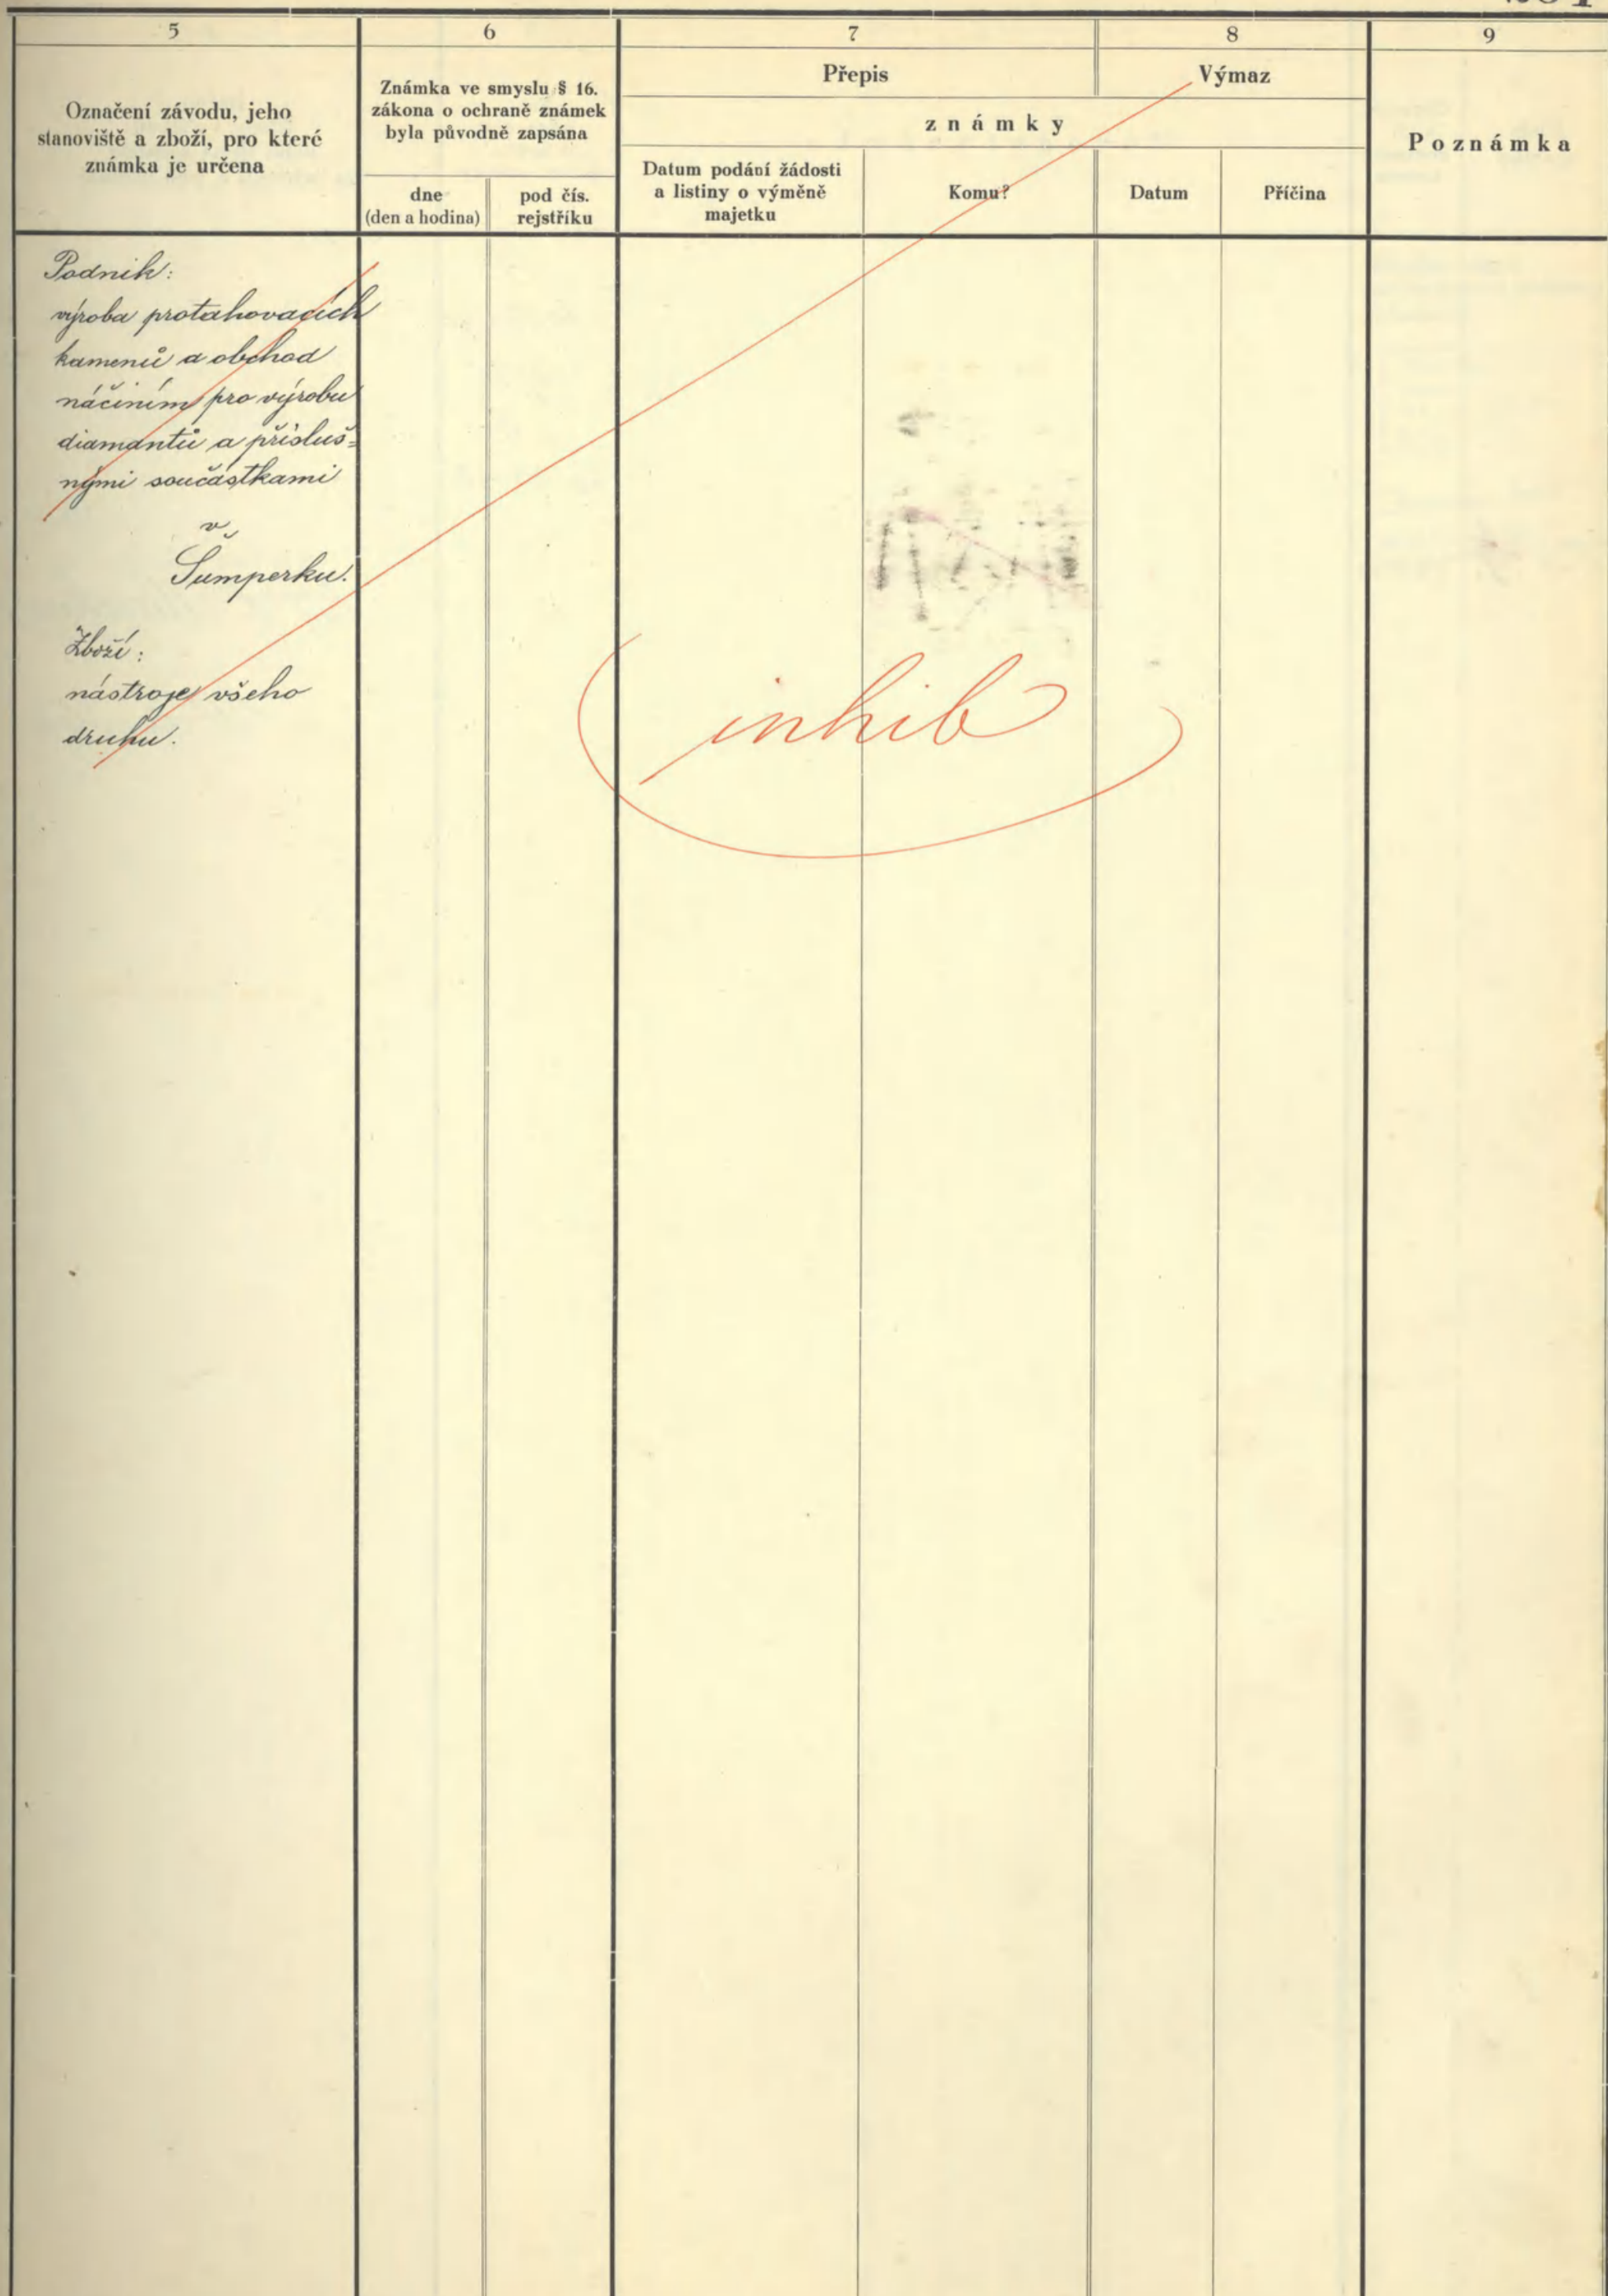 5
6
7
8
9
Označení závodu, jeho
stanoviště a zboží, pro které
známka je určena
Známka ve smyslu § 16.
zákona o ochraně známek
byla původně zapsána
dne
(den a hodina)
pod čís.
rejstříku
Přepis
Výmaz
známky
Datum podání žádosti
a listiny o výměně
majetku
Komu?
Datum
Příčina
Poznámka
Podnik:
výroba protahovacích
kamenů a obchod
náčiním pro výrobu
diamantů a přísluš-
nými součástkami
v
Šumperku.
Zboží:
nástroje všeho
druhu.
inhib